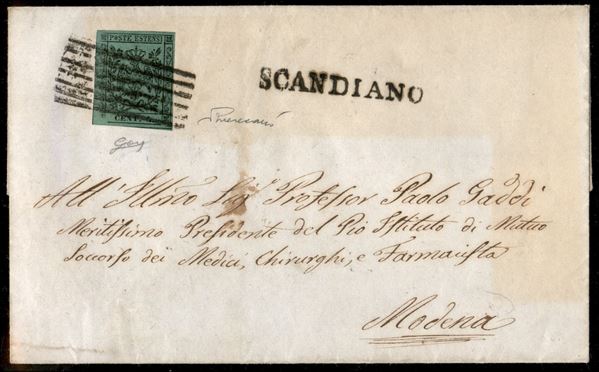 POSTE ESTENSI
CENT.
SCANDIANO
All' Illmo Sig.r Professor Paolo Gaddi
Meritissimo Presidente del Pio Istituto di Mutuo
Soccorso dei Medici, Chirurghi, e Farmacista
Modena